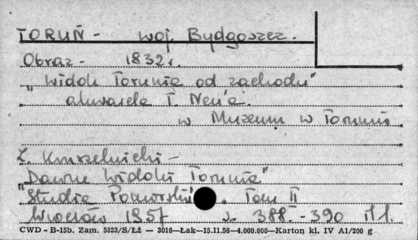 TORUŃ - woj. Bydgoszcz.
Obraz - 1832 r.
"Widok Torunia od zachodu"
akwarela T. Neu'a.
w Muzeum w Toruniu
Ł. Kurzelnicki -
"Dawne widoki Torunia"
"Studia Pomorskie" Tom II
Wrocław 1957 s. 388-390
CWD - B-15b. Zam. 5823/S/Łż — 3016—Łak—15.11.56—4.000.000—Karton kl. IV A1/200 g